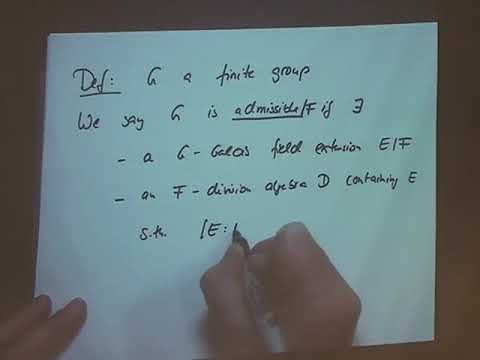 Def: G a finite group
We say G is admissible/F if ∃
- a G-Galois field extension E/F
- an F-division algebra D containing E
s.th. [E: